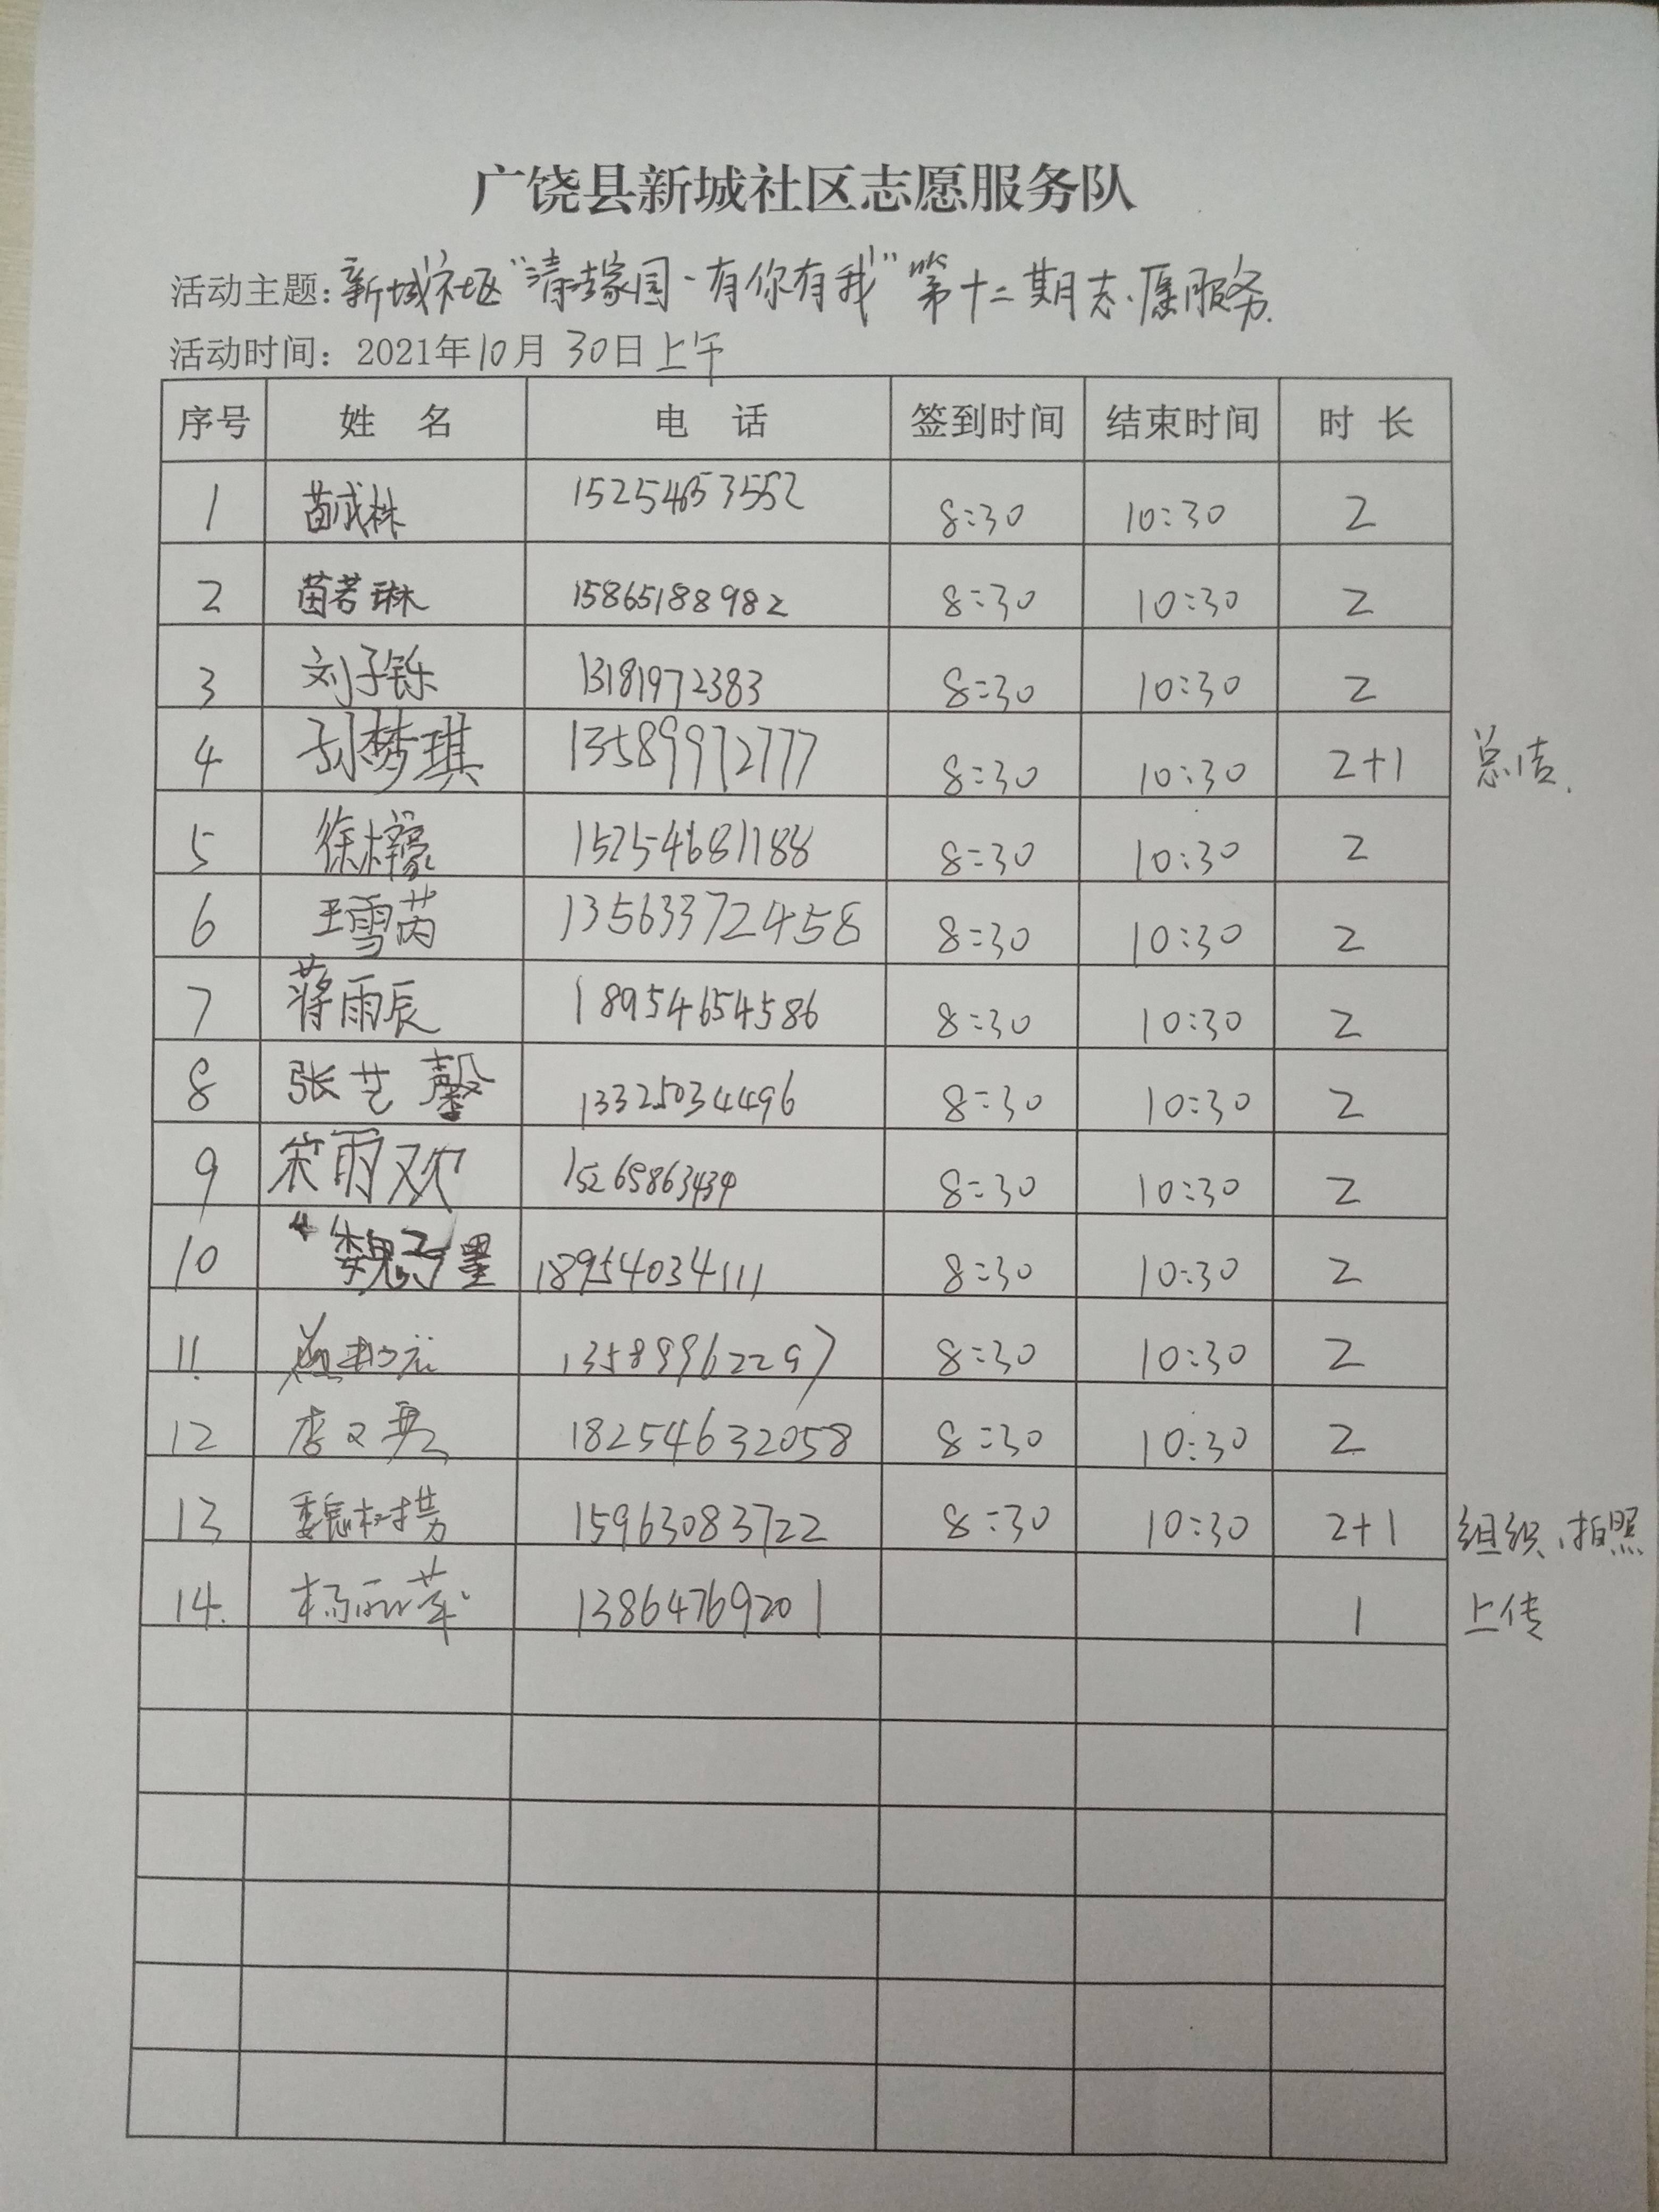 广饶县新城社区志愿服务队
活动主题：新城社区“清洁家园、有你有我”第十二期志愿服务.
活动时间：2021年10月30日上午
序号 姓名 电话 签到时间 结束时间 时长
1 苗成林 15254653552 8:30 10:30 2
2 苗若琳 15865188982 8:30 10:30 2
3 刘子铄 13181972383 8:30 10:30 2
4 孙梦琪 13589972777 8:30 10:30 2+1 总结.
5 徐梓豪 15254681188 8:30 10:30 2
6 王雪芮 13563372458 8:30 10:30 2
7 蒋雨辰 18954654586 8:30 10:30 2
8 张艺馨 13325034496 8:30 10:30 2
9 宋雨欢 15265863434 8:30 10:30 2
10 魏子墨 18954034111 8:30 10:30 2
11. 13589962297 8:30 10:30 2
12 李 18254632058 8:30 10:30 2
13 魏树 15963083722 8:30 10:30 2+1 组织、拍照
14. 杨丽 13864769201 1 上传